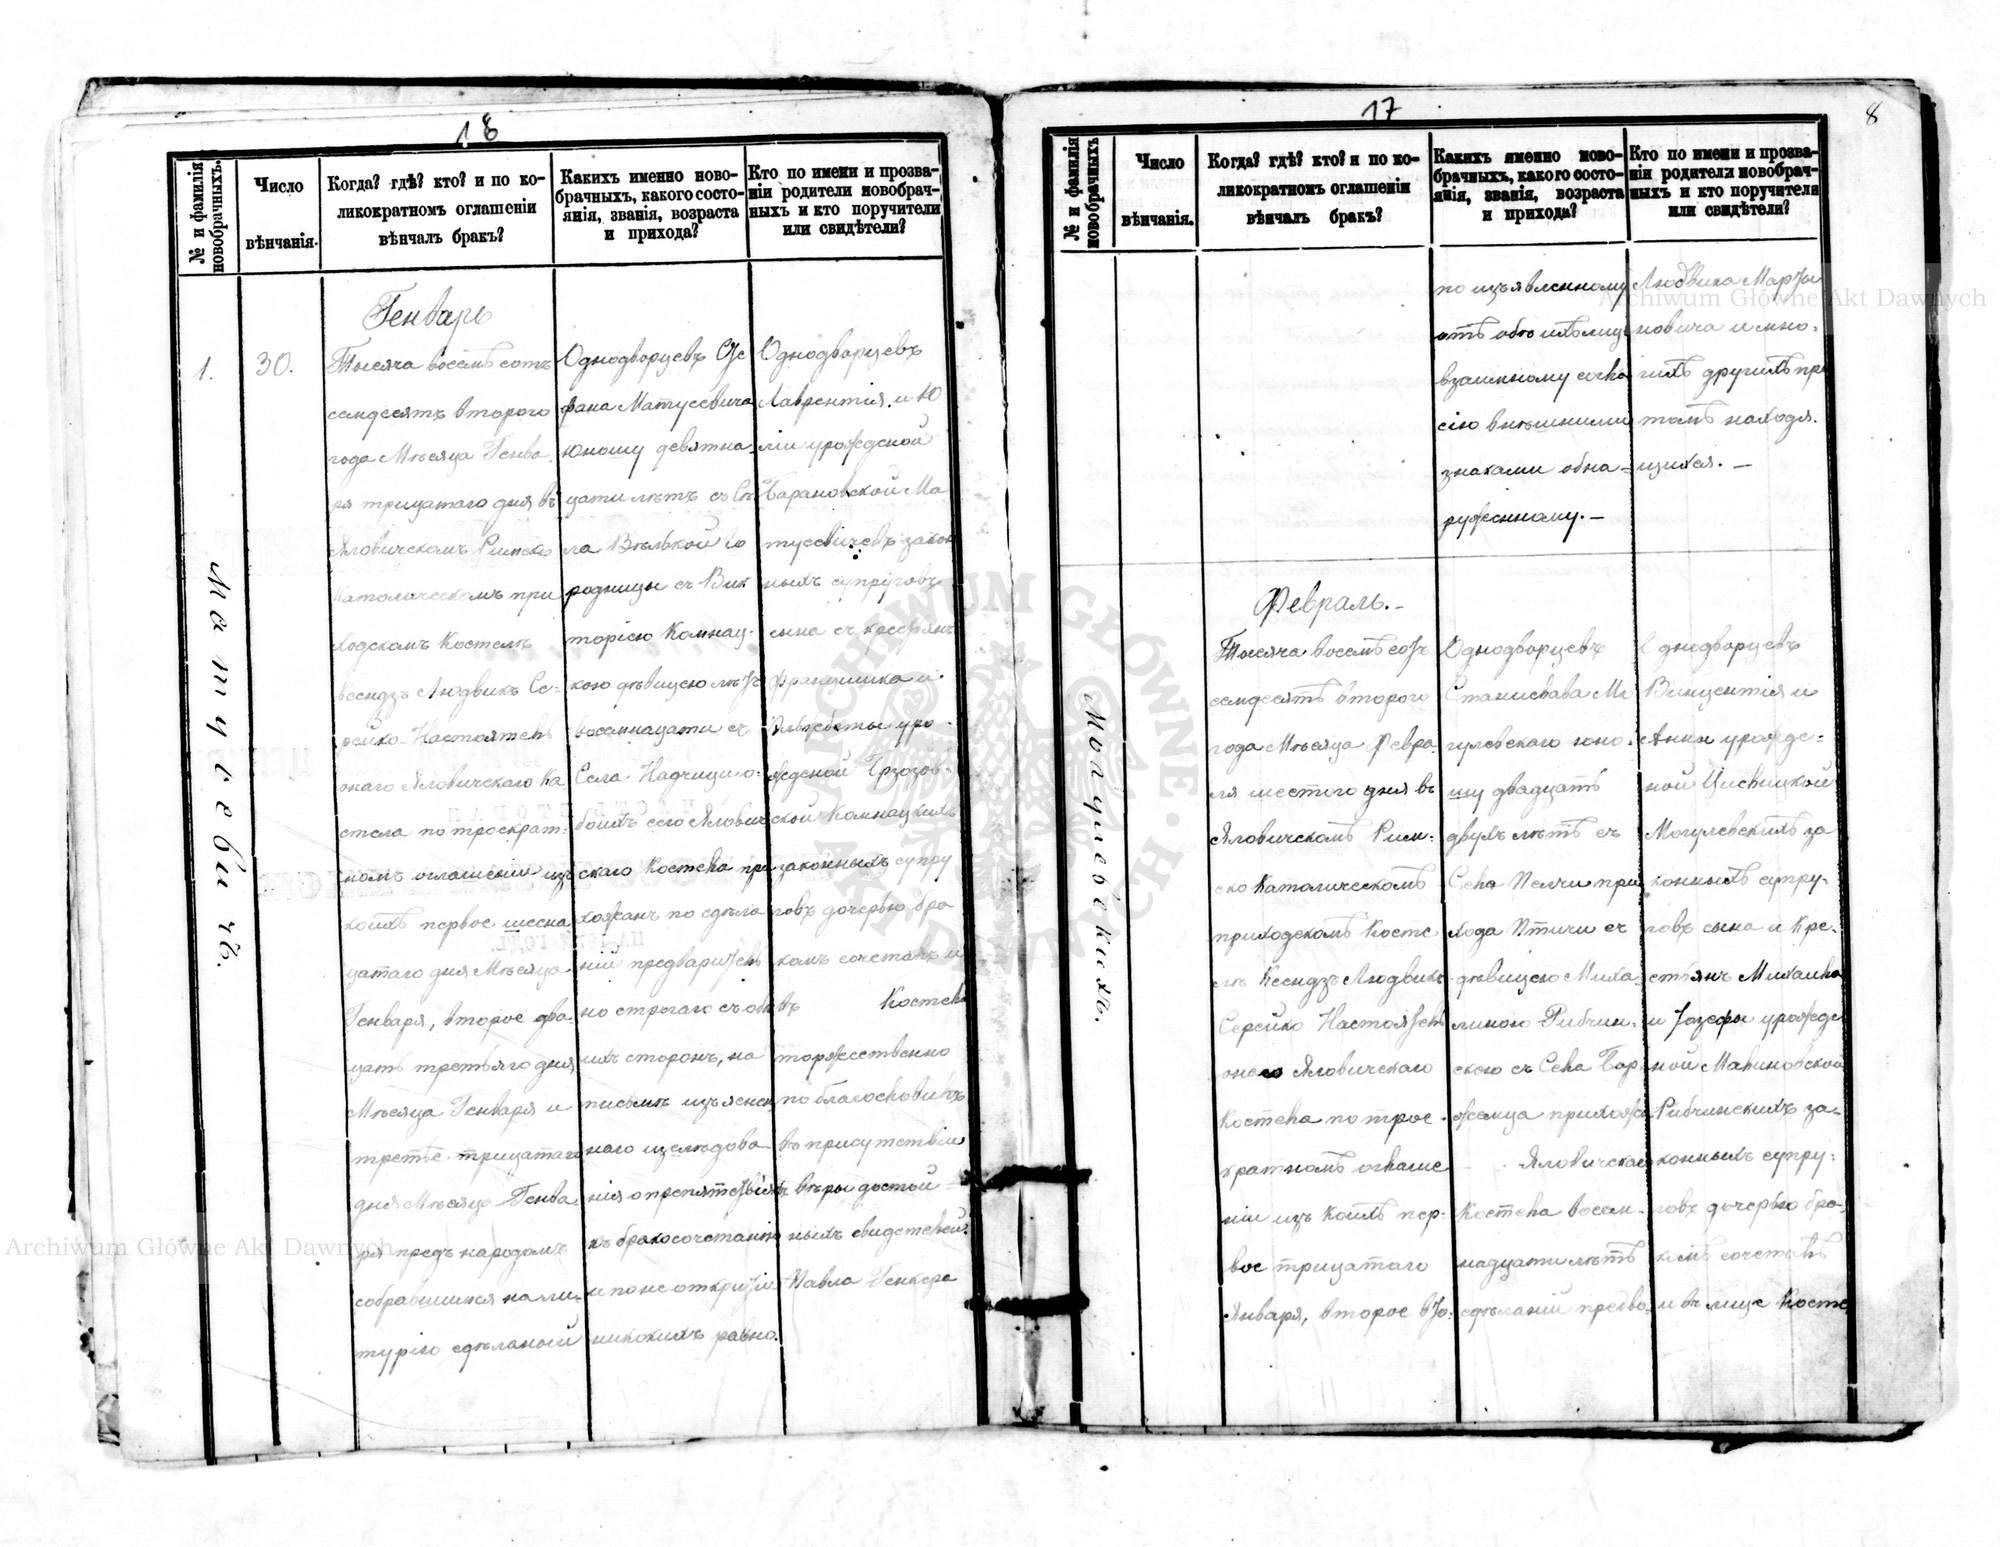 18
№ и фамилія новобрачныхъ.
Число вѣнчанія.
Когда? гдѣ? кто? и по ко-
ликократномъ оглашеніи
вѣнчалъ бракъ?
Какихъ именно ново-
брачныхъ, какого состо-
янія, званія, возраста
и прихода?
Кто по имени и прозва-
ніи родители новобрач-
ныхъ и кто поручители
или свидѣтели?
1.
Матусевичъ.
30.
Генварь
Тысяча восемъ сотъ
семдесятъ второго
года Мѣсяца Генва
ря трицатаго дня въ
Яловичскомъ Римско
Католическомъ при
ходскомъ Костелѣ
ксендзъ Людвикъ Се-
рейко Настоятель
онаго Яловичскаго Ко
стела по троекрат-
номъ оглашеніи изъ
коихъ первое шесна
цатаго дня Мѣсяца
Генваря, второе два-
цать третьяго дня
Мѣсяца Генваря и
третье трицатаго
дня Мѣсяца Генва
ря предъ народомъ
собравшимся на ли-
тургію сдѣланой
Однодворцевъ Сте
фана Матусевича
юношу девятна
цати лѣтъ съ Се
ла Вѣлькой Го
родницы съ Вик
торіею Комнац-
кою дѣвицею лѣтъ
восемнацати съ
Села Надчици о-
боихъ сего Ялович
скаго Костела при
хожанъ по сдѣла
ній предваритель
но строгаго съ обо
ихъ сторонъ, на
письмѣ изъяснен
наго изслѣдова
нія о препятствіяхъ
къ бракосочетанію
и по не открытіи
никакихъ равно
Однодворцевъ
Лаврентія и Ю
ліи урожденой
Барановской Ма
тусевичевъ закон
ныхъ супруговъ
сына съ крестьянъ
Францишка и
Эльжбеты уро-
жденой Брзозов-
ской Комнацкихъ
законныхъ супру
говъ дочерью бра
комъ сочеталъ и
въ Костела
торжественно
по благословилъ
въ присутствіи
вѣры достой
ныхъ свидетелей
Павла Генкера
17
8
№ и фамилія новобрачныхъ
Число вѣнчанія.
Когда? гдѣ? кто? и по ко-
ликократномъ оглашеніи
вѣнчалъ бракъ?
Какихъ именно ново-
брачныхъ, какого состо-
янія, званія, возраста
и прихода?
Кто по имени и прозва-
ніи родители новобрач-
ныхъ и кто поручители
или свидѣтели?
по изъявленному
отъ обоихъ лиц
взаимному согла
сію внѣшними
знаками обна-
руженному.-
Людвика Марты
новича и мно-
гихъ другихъ при
томъ находя-
щихся. -
Могулевскихъ.
Февраль.-
Тысяча восемъ сотъ
семдесятъ второго
года Мѣсяца Февра
ля шестого дня въ
Яловичскомъ Рим-
ско Католическомъ
приходскомъ Косте
лѣ Ксендзъ Людвикъ
Серейко Настоятель
онаго Яловичскаго
Костела по трое-
кратномъ оглаше
ніи изъ коихъ пер-
вое трицатаго
Января, второе вто-
Однодворцевъ
Станислава Мо
гулевскаго юно-
шу двадцать
двухъ лѣтъ съ
Села Пелчи при
хода Птичи съ
дѣвицею Миха-
линою Рибчин-
скою съ Села Бор
жемца прихожа
Яловичскаго
Костела восем-
надцати лѣтъ
сдѣланій предва
Однодворцевъ
Винцентія и
Анны урожде-
ной Цисвицкой
Могулевскихъ за
конныхъ супру-
говъ сына и Кре-
стьянъ Михаила
и Іозефы урожде
ной Малиновской
Рибчинскихъ за-
конныхъ супру-
говъ дочерью бра-
комъ сочеталъ
и въ лице Косте
Archiwum Główne Akt Dawnych
Archiwum Główne Akt Dawnych
ARCHIWUM GŁÓWNE AKT DAWNYCH